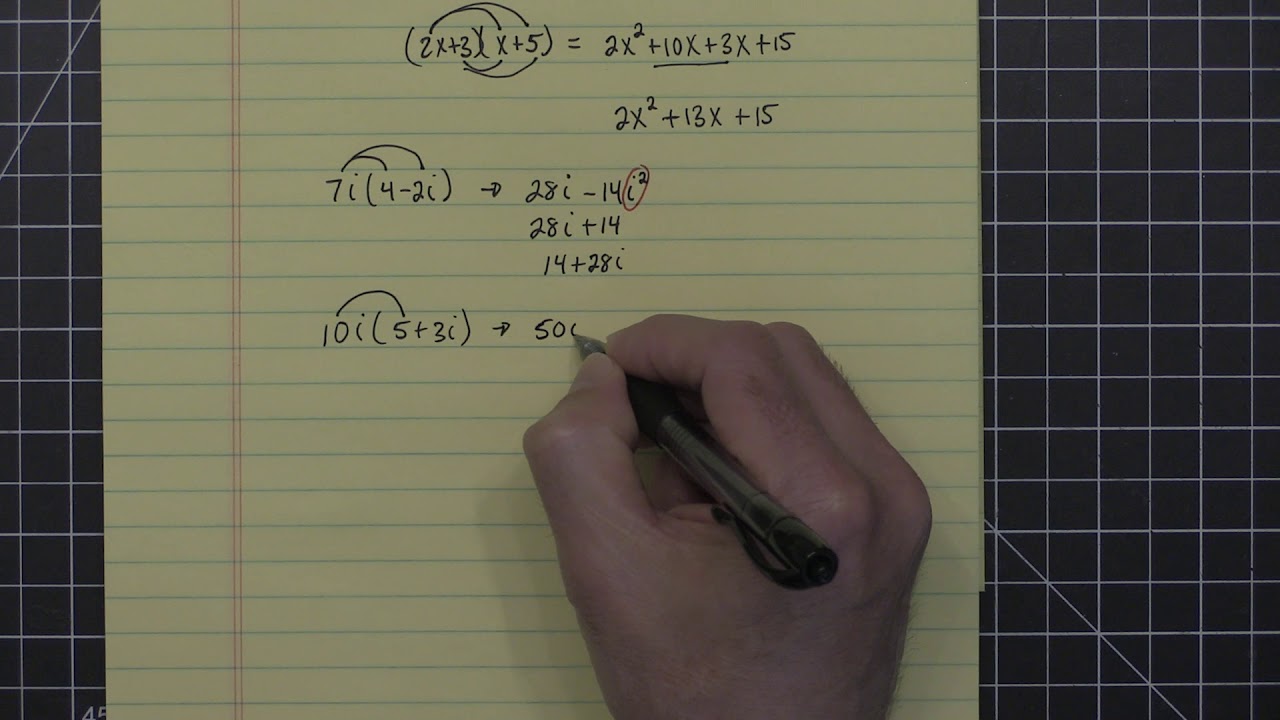 (2x+3)(x+5) = 2x²+10x+3x+15
2x²+13x+15
7i(4-2i) → 28i-14i²
28i+14
14+28i
10i(5+3i) → 50i
45